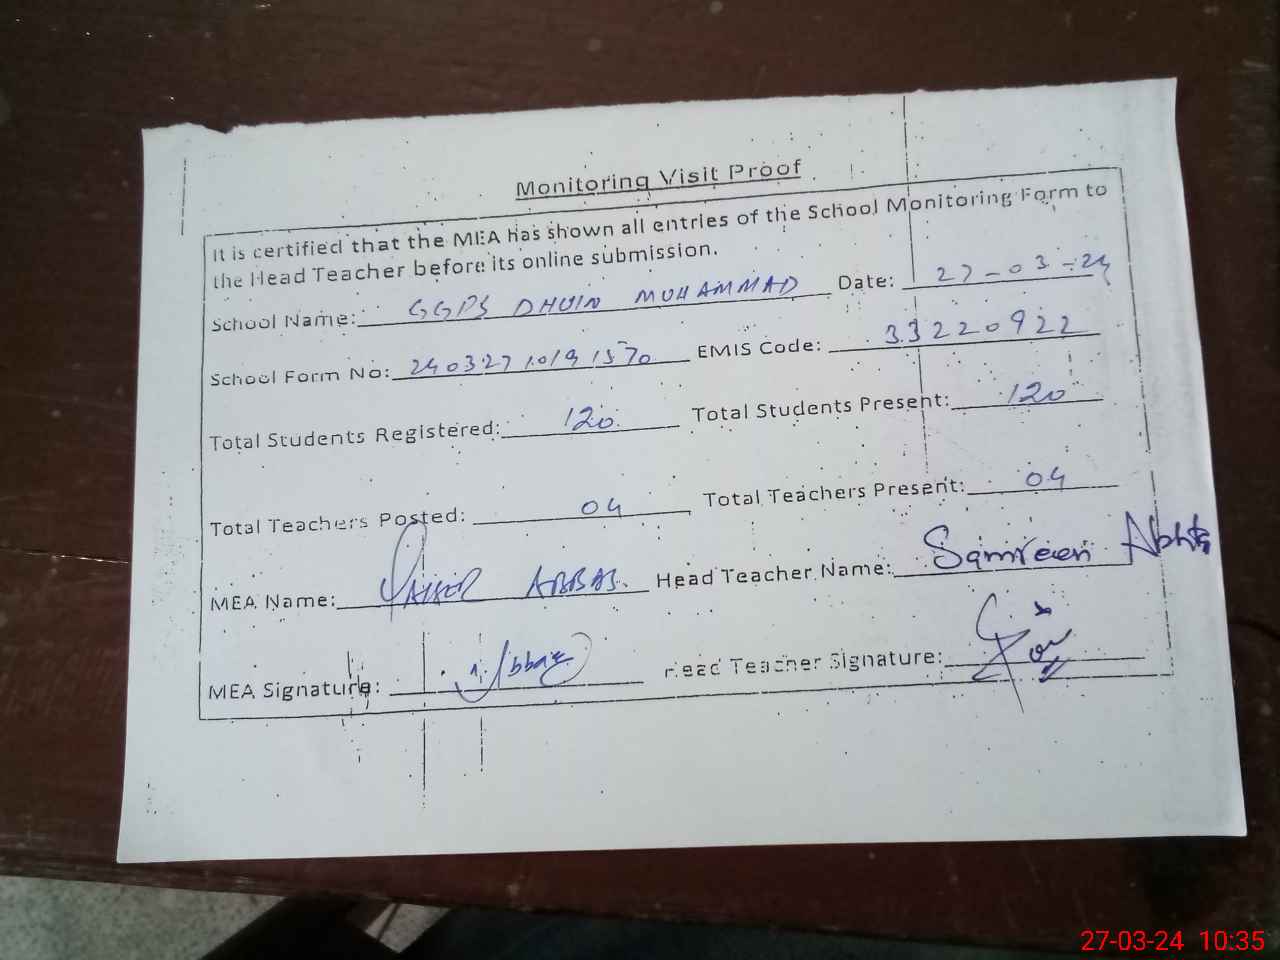 Monitoring Visit Proof
It is certified that the MEA has shown all entries of the School Monitoring Form to
the Head Teacher before its online submission.
School Name: GGPS DHUIN MUHAMMAD Date: 27-03-24
School Form No: 24032710191570 EMIS Code: 33220922
Total Students Registered: 120 Total Students Present: 120
Total Teachers Posted: 04 Total Teachers Present: 04
MEA Name: ABBAS. Head Teacher Name: Samreen
MEA Signature: Abbas Head Teacher Signature:
27-03-24 10:35